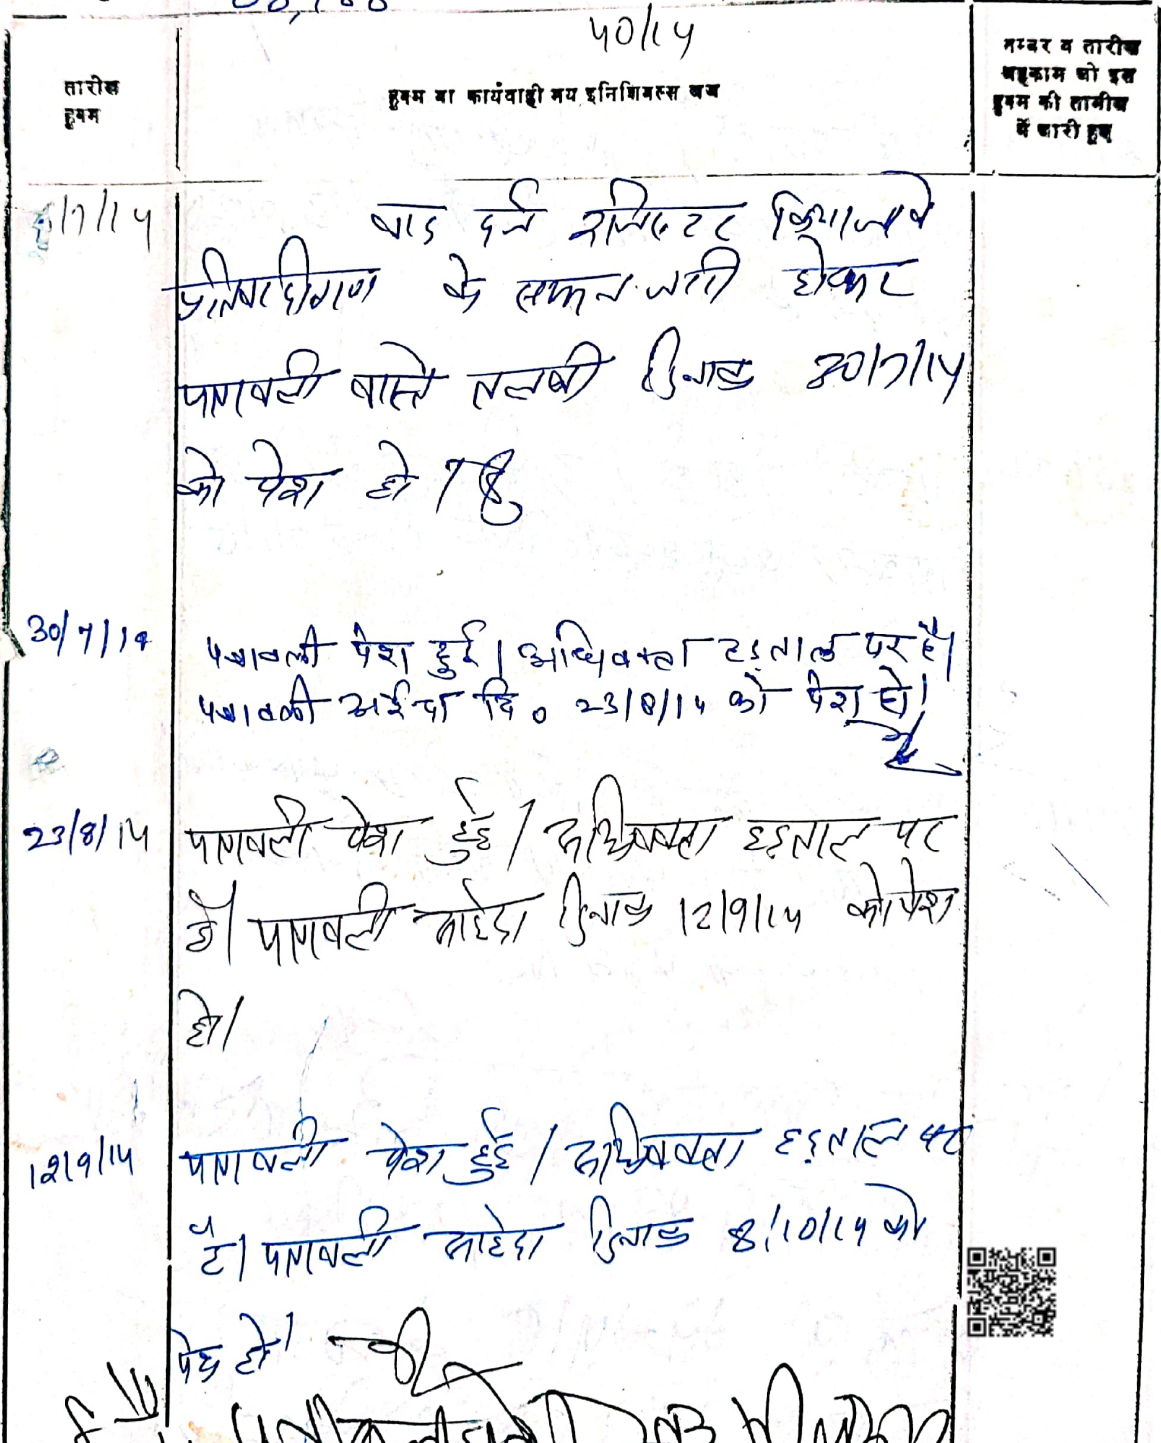 40/14
तारीख
हुक्म
हुक्म या कार्यवाही मय इनिशियल्स जज
नम्बर व तारीख
अहकाम जो इस
हुक्म की तामील
में जारी हुए
/7/14
वाद दर्ज रजिस्टर किया जावे
प्रतिवादीगण के सम्मन जारी होकर
पत्रावली वास्ते तलबी दिनांक 30/7/14
को पेश हो।
30/7/14
पत्रावली पेश हुई। अधिवक्ता हड़ताल पर है।
पत्रावली आईन्दा दि० 23/8/14 को पेश हो।
23/8/14
पत्रावली पेश हुई। अधिवक्ता हड़ताल पर
है। पत्रावली आईंदा दिनांक 12/9/14 को पेश
हो।
12/9/14
पत्रावली पेश हुई। अधिवक्ता हड़ताल पर
है। पत्रावली आईंदा दिनांक 8/10/14 को
पेश हो।